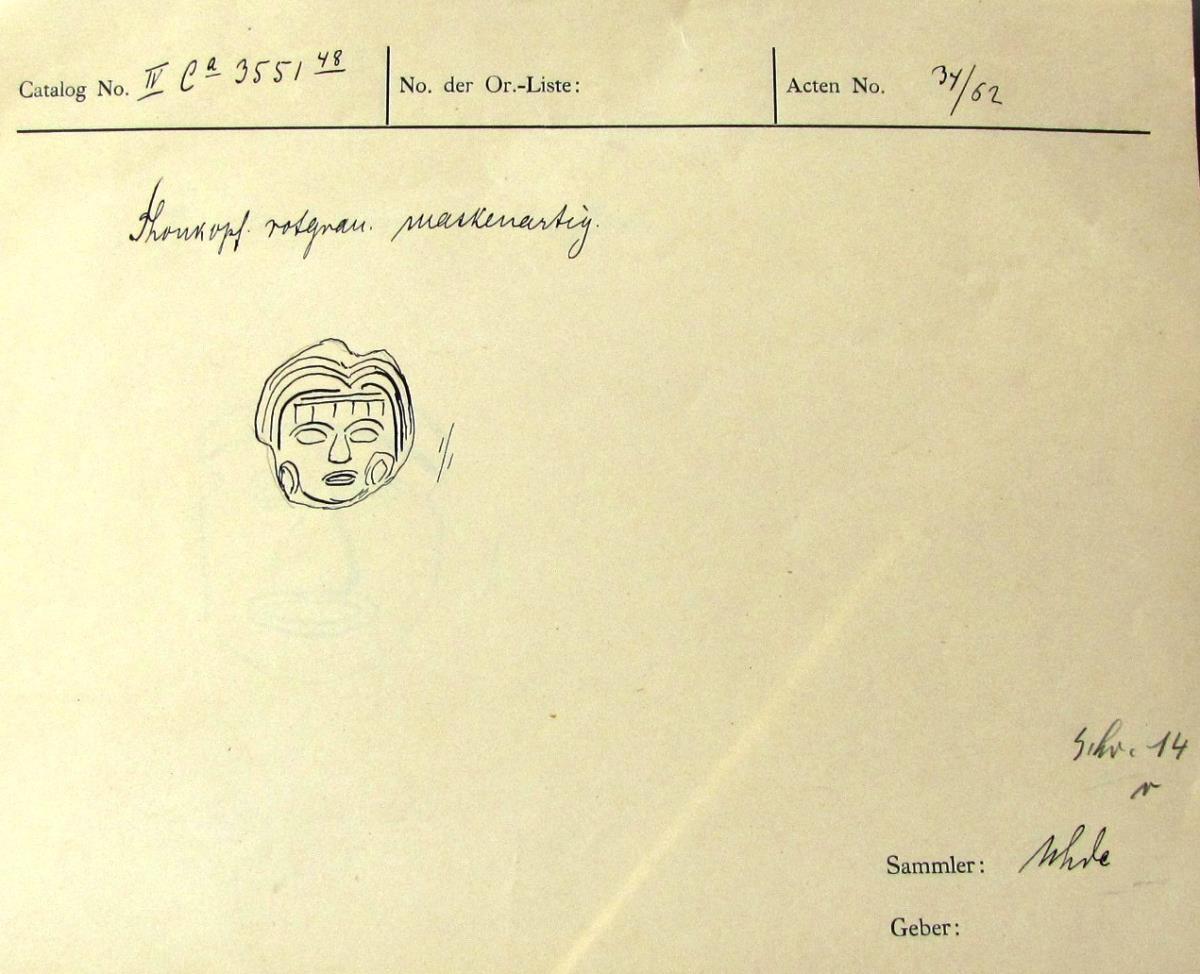 Catalog No. IV Ca 3551 48 No. der Or.-Liste: Acten No. 34/62
Thonkopf. rotgrau. maskenartig.
1/1
Schr. 14
v
Sammler: Uhde
Geber: